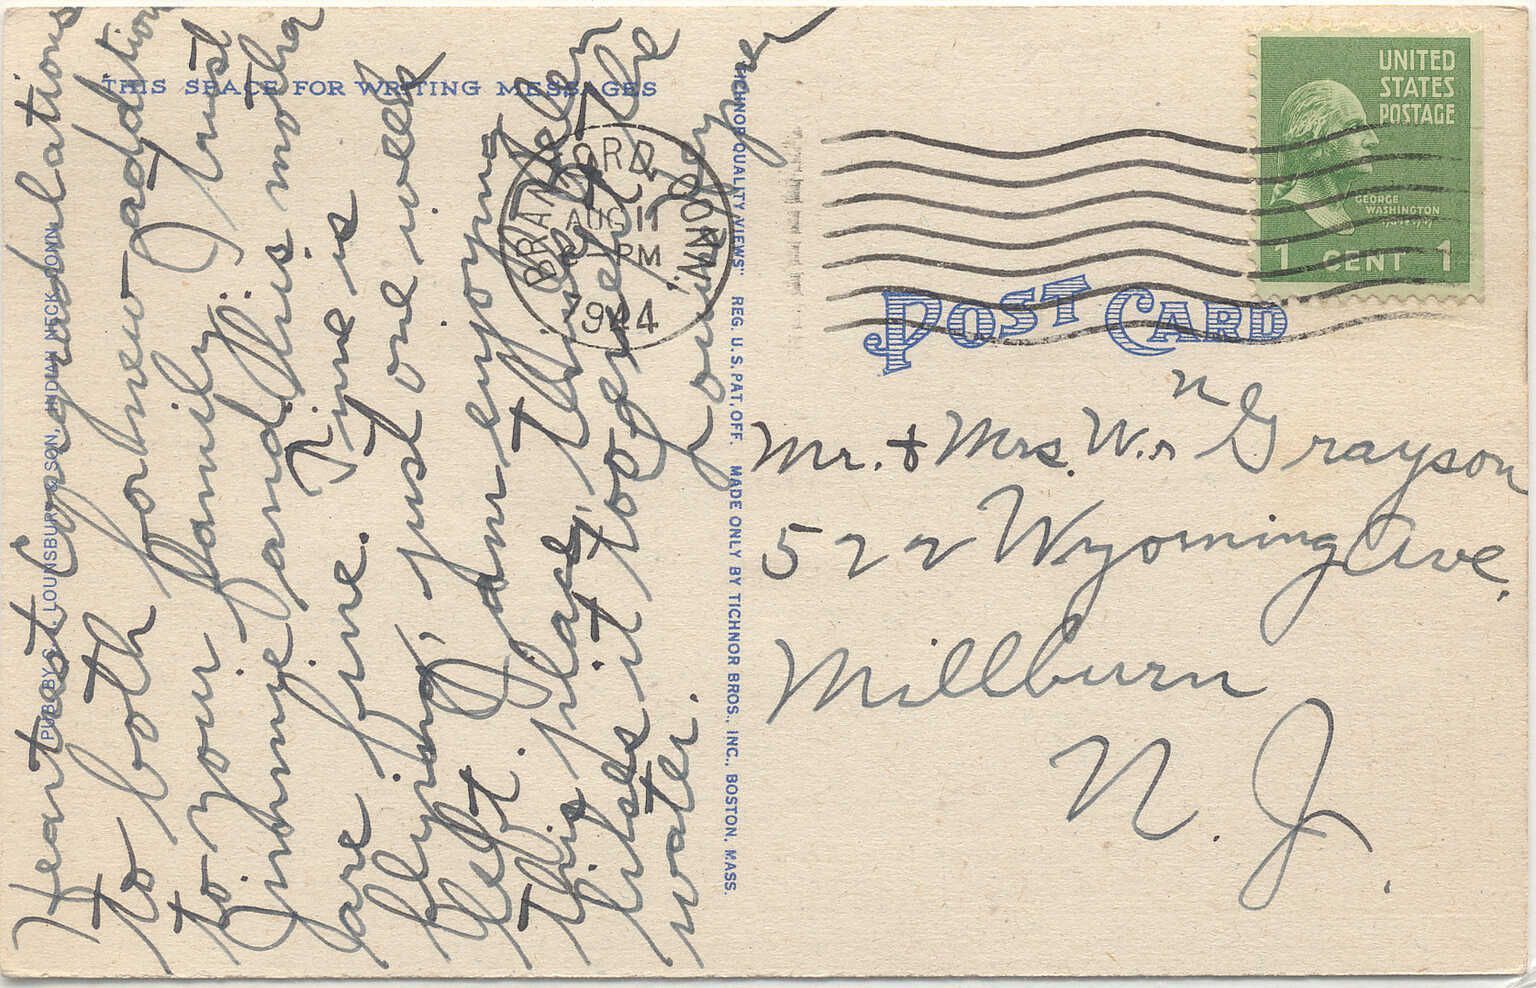 THIS SPACE FOR WRITING MESSAGES
Heartiest Congradulations
to both for new addition
to your family. I trust
Jimmye and his mother
are fine. Time is
flying, just one week
left. I am enjoying
this place, tho my
likes it too
water.
Louis
PUB. BY S. LOUNSBURY & SON, INDIAN NECK, CONN.
"TICHNOR QUALITY VIEWS" REG. U. S. PAT. OFF. MADE ONLY BY TICHNOR BROS., INC., BOSTON, MASS.
BRANFORD, CONN.
AUG 11
PM
1944
UNITED
STATES
POSTAGE
GEORGE
WASHINGTON
1 CENT 1
POST CARD
Mr. + Mrs. Wm Grayson
522 Wyoming Ave.
Millburn
N. J.